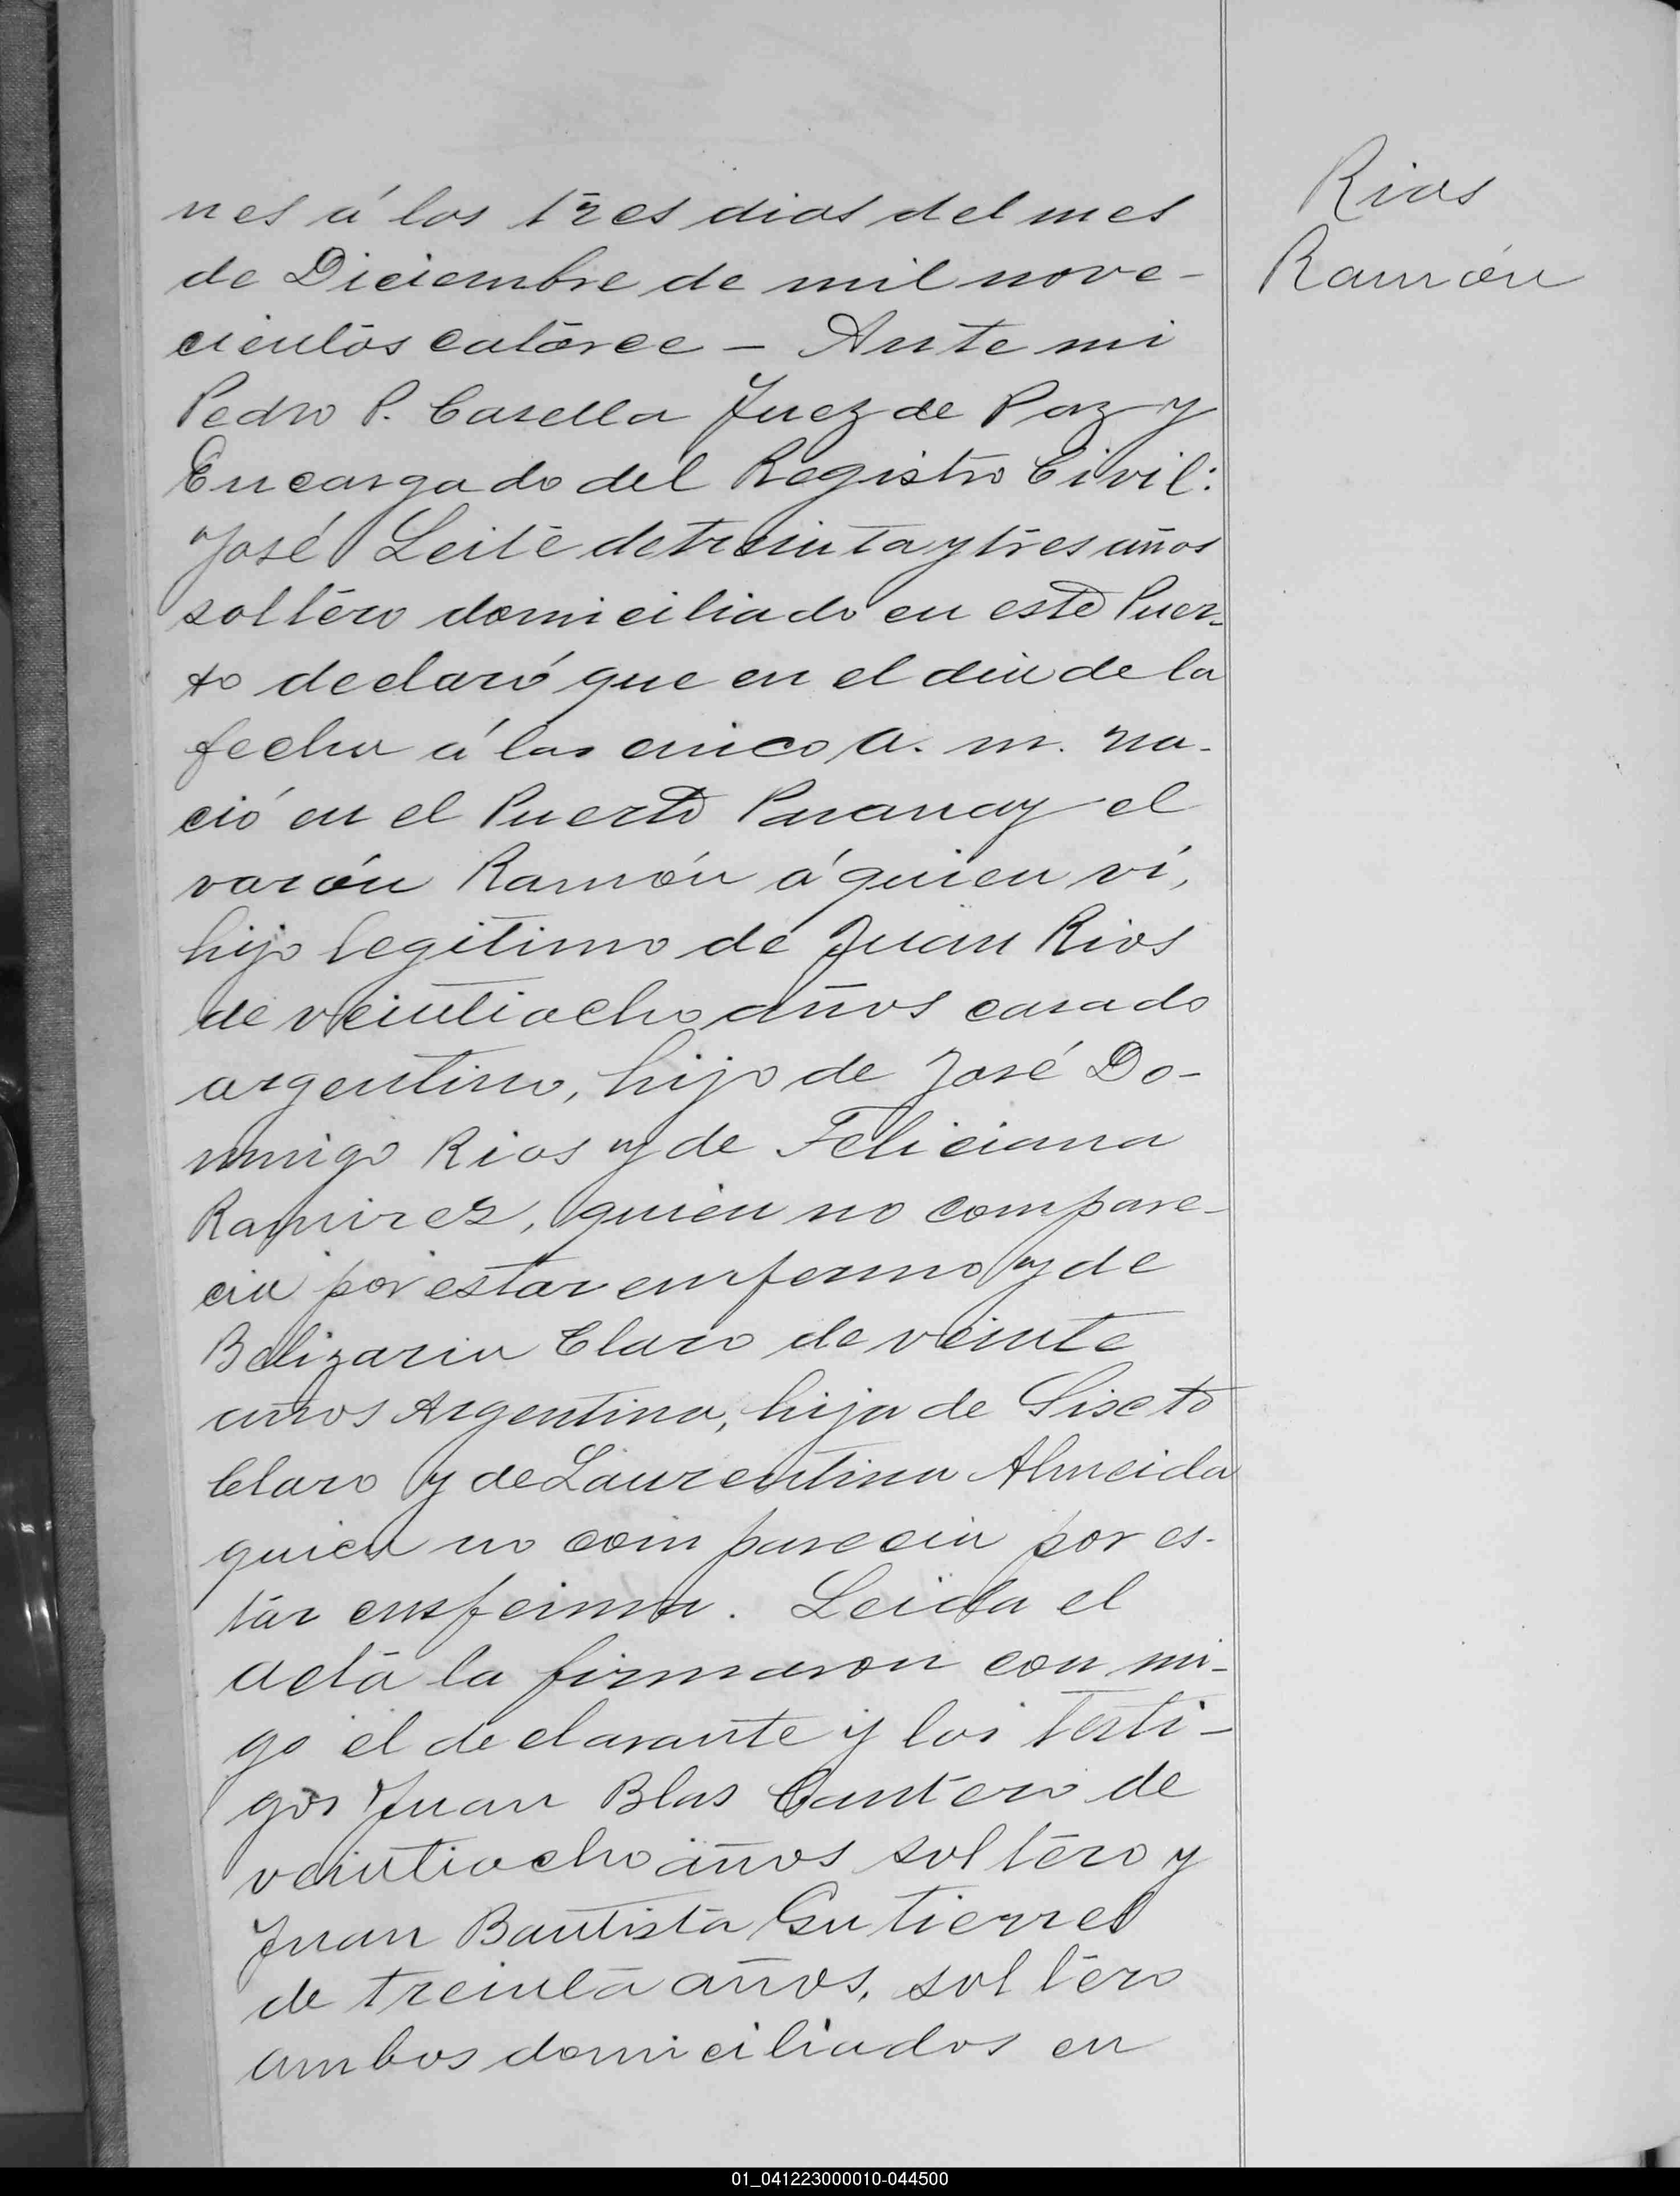 Rios
Ramón
nes á los tres dias del mes
de Diciembre de mil nove-
cientos catorce - Ante mi
Pedro P. Casella Juez de Paz y
Encargado del Registro Civil:
José Leite de treinta y tres años
soltero domiciliado en este Puer-
to declaró que en el dia de la
fecha á las cinco a. m. na-
ció en el Puerto Paranay el
varón Ramón á quien ví,
hijo legitimo de Juan Rios
de veintiocho años casado
argentino, hijo de José Do-
mingo Rios y de Feliciana
Ramirez, quien no compare-
cia por estar enfermo y de
Belizaria Claro de veinte
años Argentina, hija de
Claro y de Laurentina Almeida
quien no comparecia por es-
tar enferma. Leida el
acta la firmaron con mi-
go el declarante y los testi-
gos Juan Blas Cantero de
veintiocho años soltero y
Juan Bautista Gutierres
de treinta años, soltero
ambos domiciliados en
01_041223000010-044500